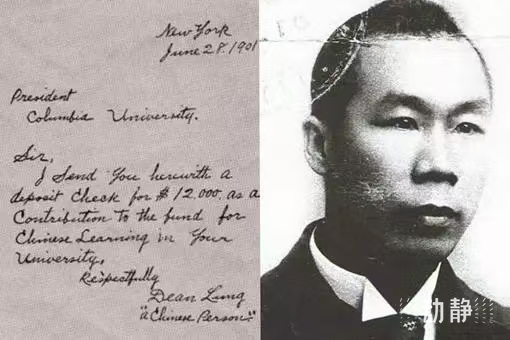 New York
June 28. 1901
President
Columbia University.
Sir,
I Send You herewith a
deposit Check for $12.000. as a
Contribution to the fund for
Chinese Learning in Your
University.
Respectfully
Dean Lung
"a Chinese Person."
动静